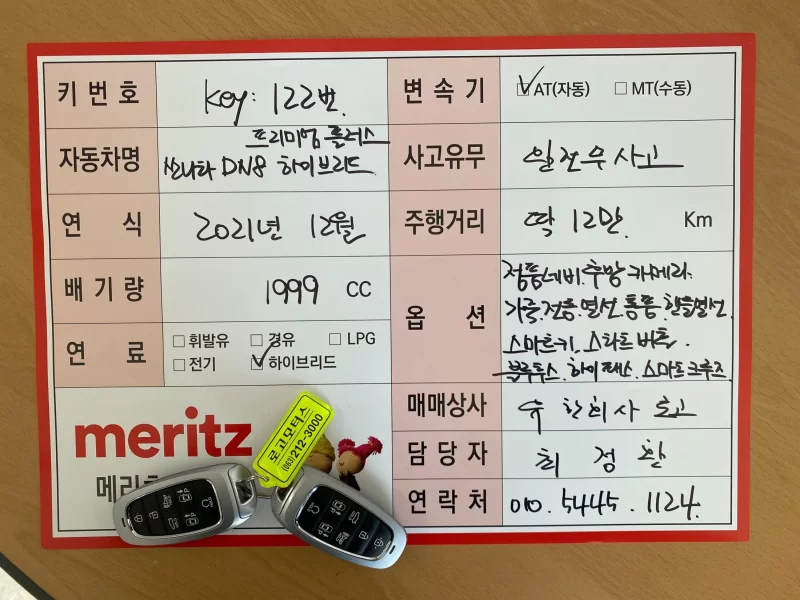 키번호 Key: 122번.
변속기 ☑ AT(자동) ☐ MT(수동)
프리미엄 플러스
자동차명 쏘나타 DN8 하이브리드
사고유무 완전무사고
연 식 2021년 12월
주행거리 딱 12만 Km
배기량 1999 CC
옵 션 정품네비.후방카메라.
가죽.전동.열선통풍.핸들열선.
스마트키.스타트버튼.
블루투스.하이패스.스마트크루즈.
연 료 ☐ 휘발유 ☐ 경유 ☐ LPG
☐ 전기 ☑ 하이브리드
매매상사 유한회사 로고
담당자 최정환
연락처 010.5445.1124.
meritz
로고모터스
(063)212-3000